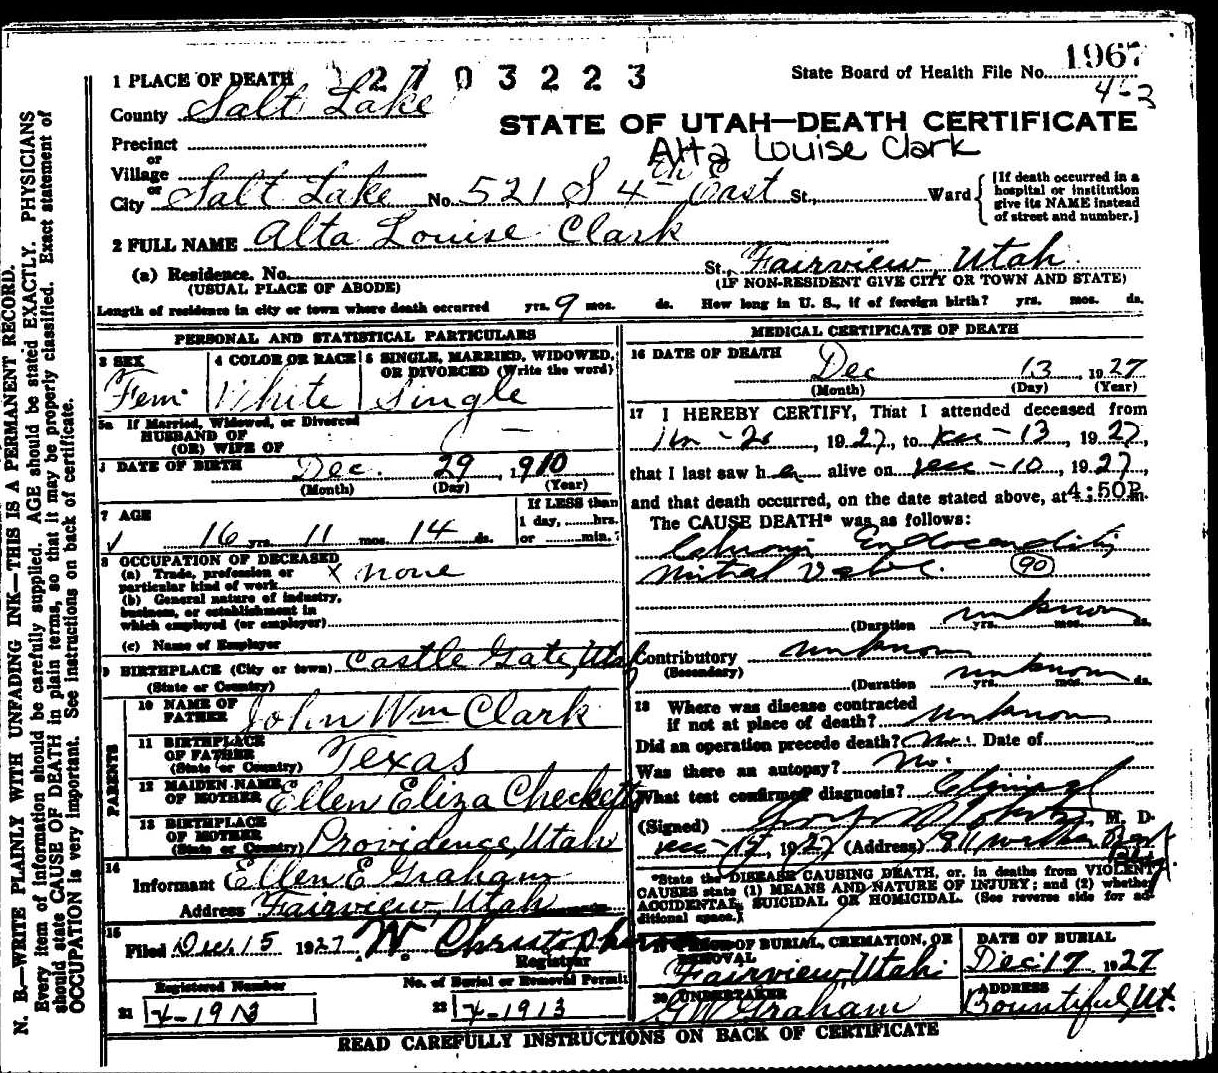 1 PLACE OF DEATH 2703223
State Board of Health File No. 1967
County Salt Lake
STATE OF UTAH—DEATH CERTIFICATE
Precinct
Alta Louise Clark
or
Village
or
City Salt Lake No. 521 S 4th East St., Ward
[If death occurred in a hospital or institution give its NAME instead of street and number.]
2 FULL NAME Alta Louise Clark
(a) Residence. No. St., Fairview, Utah.
(USUAL PLACE OF ABODE) (IF NON-RESIDENT GIVE CITY OR TOWN AND STATE)
Length of residence in city or town where death occurred yrs. 9 mos. ds. How long in U. S., if of foreign birth? yrs. mos. ds.
PERSONAL AND STATISTICAL PARTICULARS
3 SEX 4 COLOR OR RACE 5 SINGLE, MARRIED, WIDOWED, OR DIVORCED (Write the word)
Fem White Single
5a If Married, Widowed, or Divorced
HUSBAND OF
(OR) WIFE OF
DATE OF BIRTH Dec. 29, 1910
(Month) (Day) (Year)
7 AGE If LESS than
16 yrs. 11 mos. 14 ds. 1 day, ......hrs.
or ......min.?
8 OCCUPATION OF DECEASED
(a) Trade, profession or
particular kind of work x none
(b) General nature of industry,
business, or establishment in
which employed (or employer)
(c) Name of Employer
9 BIRTHPLACE (City or town) Castle Gate, Utah
(State or Country)
PARENTS
10 NAME OF FATHER John Wm Clark
11 BIRTHPLACE OF FATHER (State or Country) Texas
12 MAIDEN NAME OF MOTHER Ellen Eliza Checketts
13 BIRTHPLACE OF MOTHER (State or Country) Providence, Utah
14 Informant Ellen E Graham
Address Fairview, Utah
15 Filed Dec. 15 1927. W. Christopherson
Registrar
Registered Number No. of Burial or Removal Permit
21 x-1913 22 x-1913
MEDICAL CERTIFICATE OF DEATH
16 DATE OF DEATH Dec 13 1927
(Month) (Day) (Year)
17 I HEREBY CERTIFY, That I attended deceased from
, 1927, to Dec - 13, 1927,
that I last saw her alive on Dec - 10, 1927,
and that death occurred, on the date stated above, at 4:50P.m.
The CAUSE DEATH* was as follows:
Chronic Endocarditis
Mitral Valve. 90
(Duration unknown yrs. mos. ds.
Contributory unknown
(Secondary) (Duration unknown yrs. mos. ds.
18 Where was disease contracted
if not at place of death? unknown
Did an operation precede death? No. Date of
Was there an autopsy? No.
What test confirmed diagnosis? Clinical
(Signed) M. D.
Dec - 1927 (Address)
*State the DISEASE CAUSING DEATH, or. in deaths from VIOLENT
CAUSES state (1) MEANS AND NATURE OF INJURY; and (2) whether
ACCIDENTAL, SUICIDAL OR HOMICIDAL. (See reverse side for ad-
ditional space.)
OF BURIAL, CREMATION, OR REMOVAL DATE OF BURIAL
Fairview, Utah Dec 17 1927
20 UNDERTAKER ADDRESS
GW Graham Bountiful, Ut.
READ CAREFULLY INSTRUCTIONS ON BACK OF CERTIFICATE
N. B.—WRITE PLAINLY WITH UNFADING INK—THIS IS A PERMANENT RECORD.
Every item of information should be carefully supplied. AGE should be stated EXACTLY. PHYSICIANS
should state CAUSE OF DEATH in plain terms, so that it may be properly classified. Exact statement of
OCCUPATION is very important. See instructions on back of certificate.